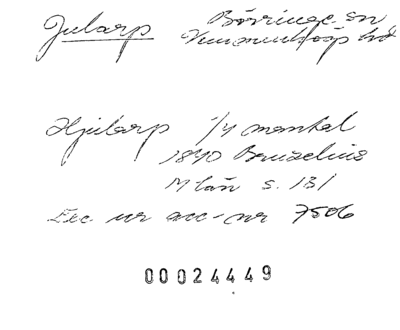 Jularp Börringe sn
Vemmenhögs hd
Hjularp 1/4 mantal
1840 Bruzelius
M län s. 131
Exc. ur acc-nr 7506
00024449